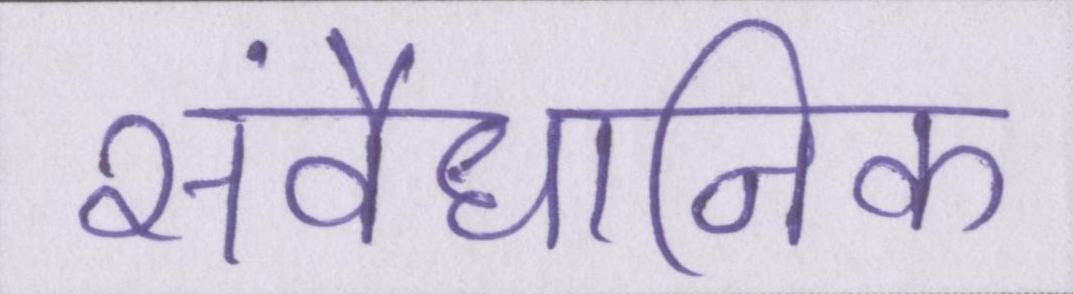 संवैधानिक